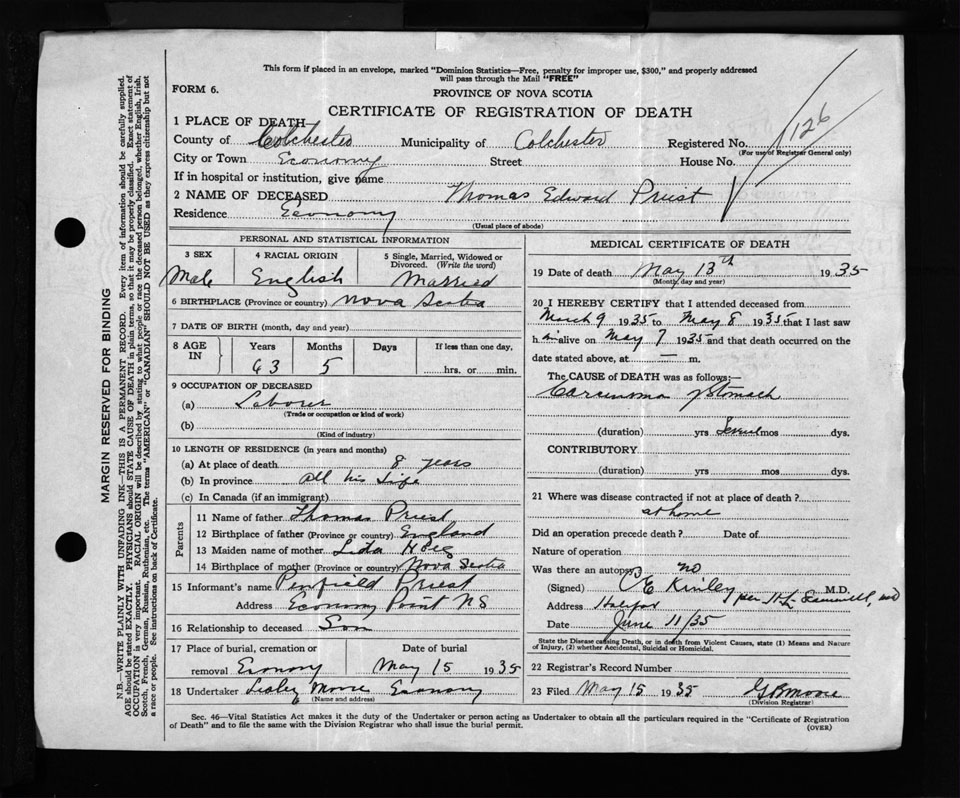 This form if placed in an envelope, marked "Dominion Statistics—Free, penalty for improper use, $300," and properly addressed
will pass through the Mail "FREE"
FORM 6.
PROVINCE OF NOVA SCOTIA
CERTIFICATE OF REGISTRATION OF DEATH
126
1 PLACE OF DEATH
County of Colchester Municipality of Colchester Registered No.
(For use of Registrar General only)
City or Town Economy Street House No.
If in hospital or institution, give name
2 NAME OF DECEASED Thomas Edward Priest
Residence Economy
(Usual place of abode)
PERSONAL AND STATISTICAL INFORMATION
3 SEX 4 RACIAL ORIGIN 5 Single, Married, Widowed or Divorced. (Write the word)
Male English Married
6 BIRTHPLACE (Province or country) Nova Scotia
7 DATE OF BIRTH (month, day and year)
8 AGE IN Years Months Days If less than one day,
63 5 hrs. or min.
9 OCCUPATION OF DECEASED
(a) Laborer
(Trade or occupation or kind of work)
(b)
(Kind of industry)
10 LENGTH OF RESIDENCE (in years and months)
(a) At place of death 8 years
(b) In province all his life
(c) In Canada (if an immigrant)
Parents
11 Name of father Thomas Priest
12 Birthplace of father (Province or country) England
13 Maiden name of mother Lida
14 Birthplace of mother (Province or country) Nova Scotia
15 Informant's name Penfield Priest
Address Economy Point N S
16 Relationship to deceased Son
17 Place of burial, cremation or removal Economy Date of burial May 15 1935
18 Undertaker Lesley Moore Economy
(Name and address)
MEDICAL CERTIFICATE OF DEATH
19 Date of death May 13th 1935
(Month, day and year)
20 I HEREBY CERTIFY that I attended deceased from
March 9 1935 to May 8 1935 that I last saw
h im alive on May 7 1935 and that death occurred on the
date stated above, at — m.
The CAUSE of DEATH was as follows:—
Carcinoma of Stomach
(duration) yrs several mos dys.
CONTRIBUTORY
(duration) yrs mos dys.
21 Where was disease contracted if not at place of death?
at home
Did an operation precede death? Date of
Nature of operation
Was there an autopsy? no
(Signed) C E Kinley M.D.
Address Halifax
Date June 11/35
State the Disease causing Death, or in death from Violent Causes, state (1) Means and Nature
of Injury, (2) whether Accidental, Suicidal or Homicidal.
22 Registrar's Record Number
23 Filed May 15 1935 G B Moore
(Division Registrar)
Sec. 46—Vital Statistics Act makes it the duty of the Undertaker or person acting as Undertaker to obtain all the particulars required in the "Certificate of Registration
of Death" and to file the same with the Division Registrar who shall issue the burial permit.
(OVER)
MARGIN RESERVED FOR BINDING
N.B.—WRITE PLAINLY WITH UNFADING INK—THIS IS A PERMANENT RECORD. Every item of information should be carefully supplied.
AGE should be stated EXACTLY. PHYSICIANS should STATE CAUSE OF DEATH in plain terms, so that it may be properly classified. Exact statement of
OCCUPATION is very important. RACIAL ORIGIN will be described by stating to what people or race the deceased person belonged, whether English, Irish,
Scotch, French, German, Russian, Ruthenian, etc. The terms "AMERICAN" or "CANADIAN" SHOULD NOT BE USED as they express citizenship but not
a race or people. See instructions on back of Certificate.